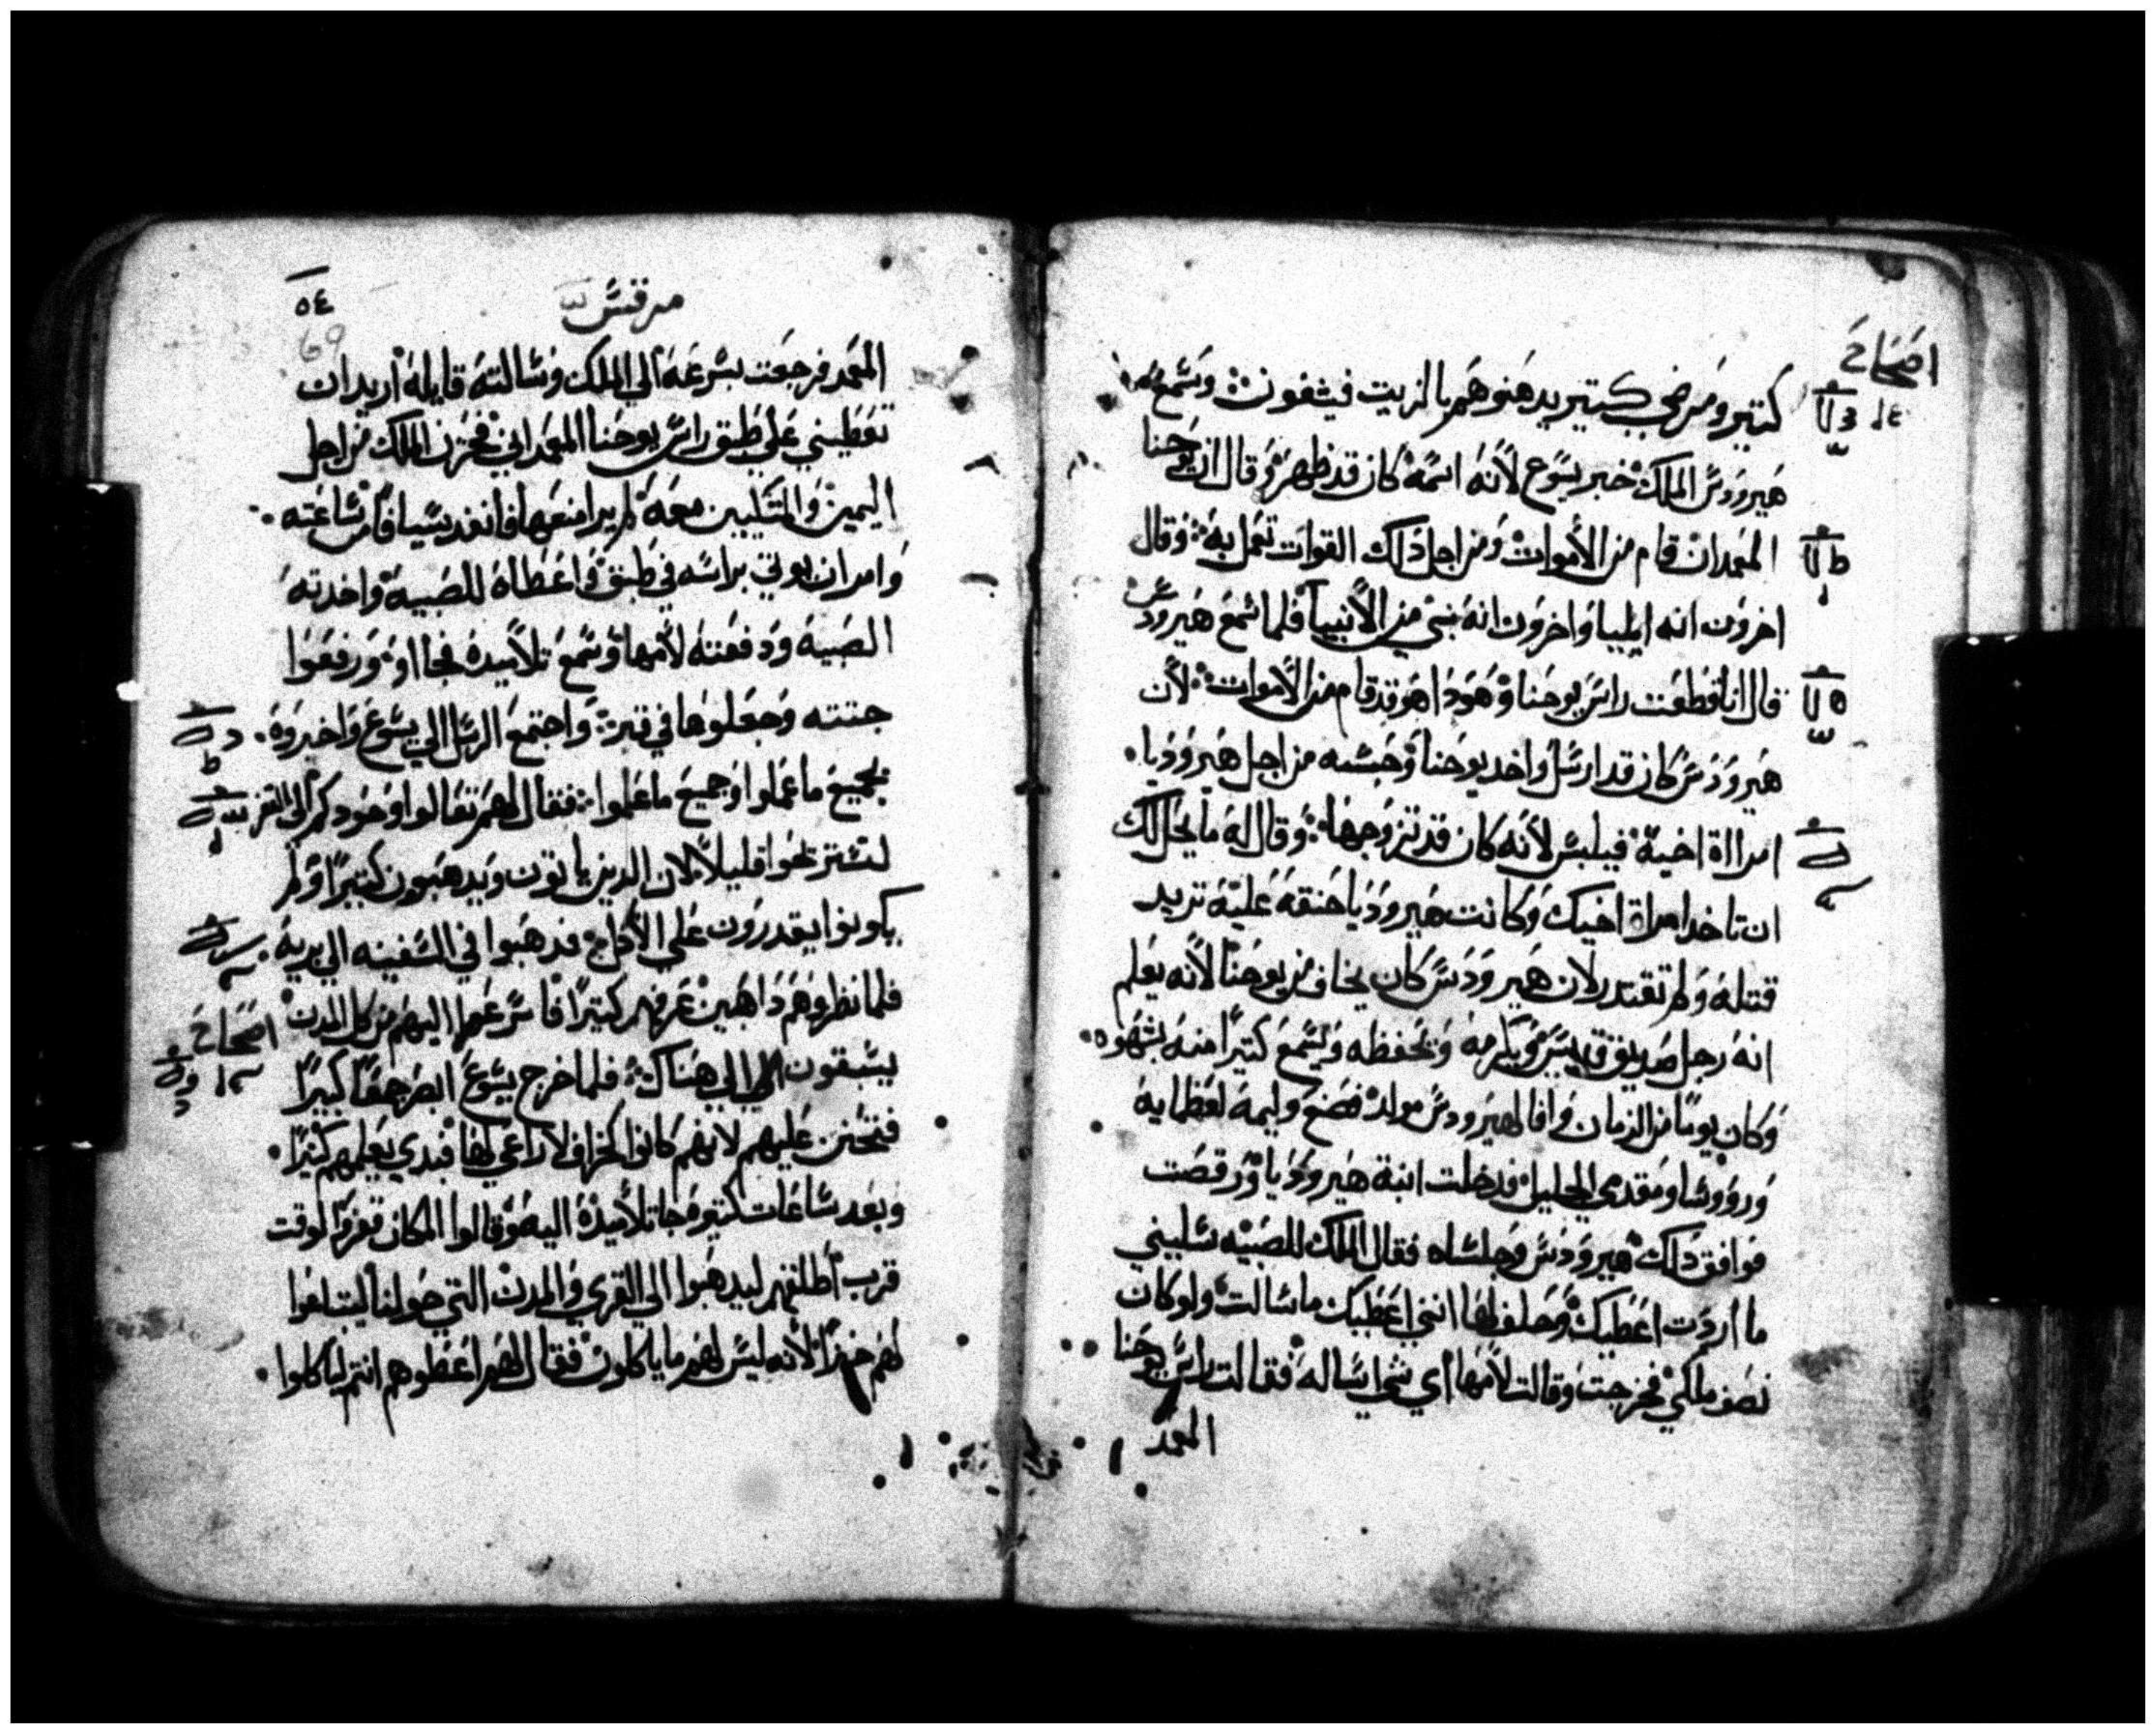 اصَحَاحَ
١٤
كتير ومَرضي كتير يدهنوهَم بالزيت فيشفون وسَمع
هَيرودسَ الملك خبر يسَوع لأنه اسَمه كان قد ظهرَ وقال ان يوحنا
المعَمدان قام من الأموات ومن اجل دَلك القوات تعَمل به وَقال
اخروَن انه ايليا وَاخروَن انه نبي من الأنبيا فلما سَمعَ هَيرودسَ
قال انا قطعَت راسَ يوحنا وَهَودَا هَو قد قام من الأموات لأن
هَيروَدسَ كان قد ارسَل واخد يوحَنا وَحَبسَه من اجل هَيروَدَيا
امرااة اخيه فيلبسَ لأنه كان قد تزوجهَا وَقال له ما يحَل لك
ان تاخد امراة اخيك وَكانت هَيروَدَيا حَنقه عَليه تريد
قتله وَلم تقتدر لان هَيروَدسَ كان يخاف من يوحنا لأنه يعَلم
انه رجل صَديق قديسَ وَيكرمه وَيحَفظه وَيسَمع كتيراً منه بشهَوه
وَكان يوماً من الزمان وَافا لهَيرودسَ مولد فصَنع وليمه لعَظمايه
وَروَوسَا ومَقدمي الجليل فدخلت ابنة هَيروَدَيا وَرقصَت
فوافق دَلك هَيروَدسَ وَجلسَاه فقال الملك للصَبيه سَليني
ما اردَت اعَطيك وَحَلف لهَا انني اعَطيك ما سَالت ولو كان
نصَف ملكي فخرجت وقالت لأمهَا اي شي اسَاله فقالت راسَ يوحَنا
المعَمد
مرقسَ
٥٤
69
المعَمد فرجعَت بسَرعَه الي الملك وَسَالته قايله اريد ان
تعَطيني عَلي طبق راسَ يوحَنا المعَمداني فحَزن الملك من اجل
اليمين وَالمتكيين معَه لم يرد امنعَهَا فانفد سَيافاً من سَاعَته
وَامر ان يوتي براسَه في طبق وَاعَطاه للصَبيه وَاخدته
الصَبيه وَدَفعَته لأمهَا وَسَمع تلاميده فجااو وَرفعَوا
جتته وَجعَلوهَا في قبر وَاجتمعَ الرسَل الي يسَوعَ وَاخبروه
بجميعَ ما عَملوا وَجميعَ ما عَلموا فقال لهَم تعَالوا وَحَودكم الي القفر
لتسَتريحَوا قليلاً لان الدين ياتون وَيدهَبون كتيراً وَلم
يكونوا يقدروَن عَلي الأكل فدهَبوا في السَفينه الي بريه
فلما نظروهَم دَاهَبين عَرفهم كتيراً فاسَرعَوا اليهَم من كل المدن
اصَحَاحَ
يسَبقون الي هَناك فلما خرج يسَوعَ ابصَر جمعَاً كبيراً
فتحَنن عَليهم لانهَم كانوا كخراف لا راعَي لهَا فبدي يعَلمهم كتيراً
وبعَد سَاعَات كتيره جا تلاميده اليه وَقالوا المكان قفر وَالوقت
قرب اطلقهم ليدهَبوا الي القري وَالمدن التي حَولنا ليبتاعَوا
لهَم خبزاً لأنه ليسَ لهَم ما ياكلون فقال لهَم اعَطوهم انتم لياكلوا